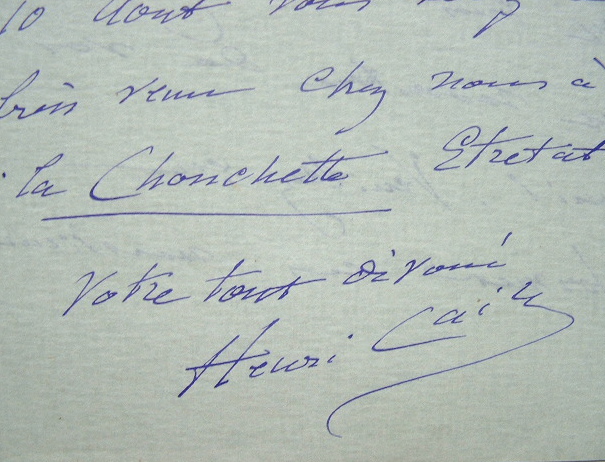 10 Août vous
bien venu chez nous à
la Chonchette Etretat
Votre tout dévoué
Henri Cain